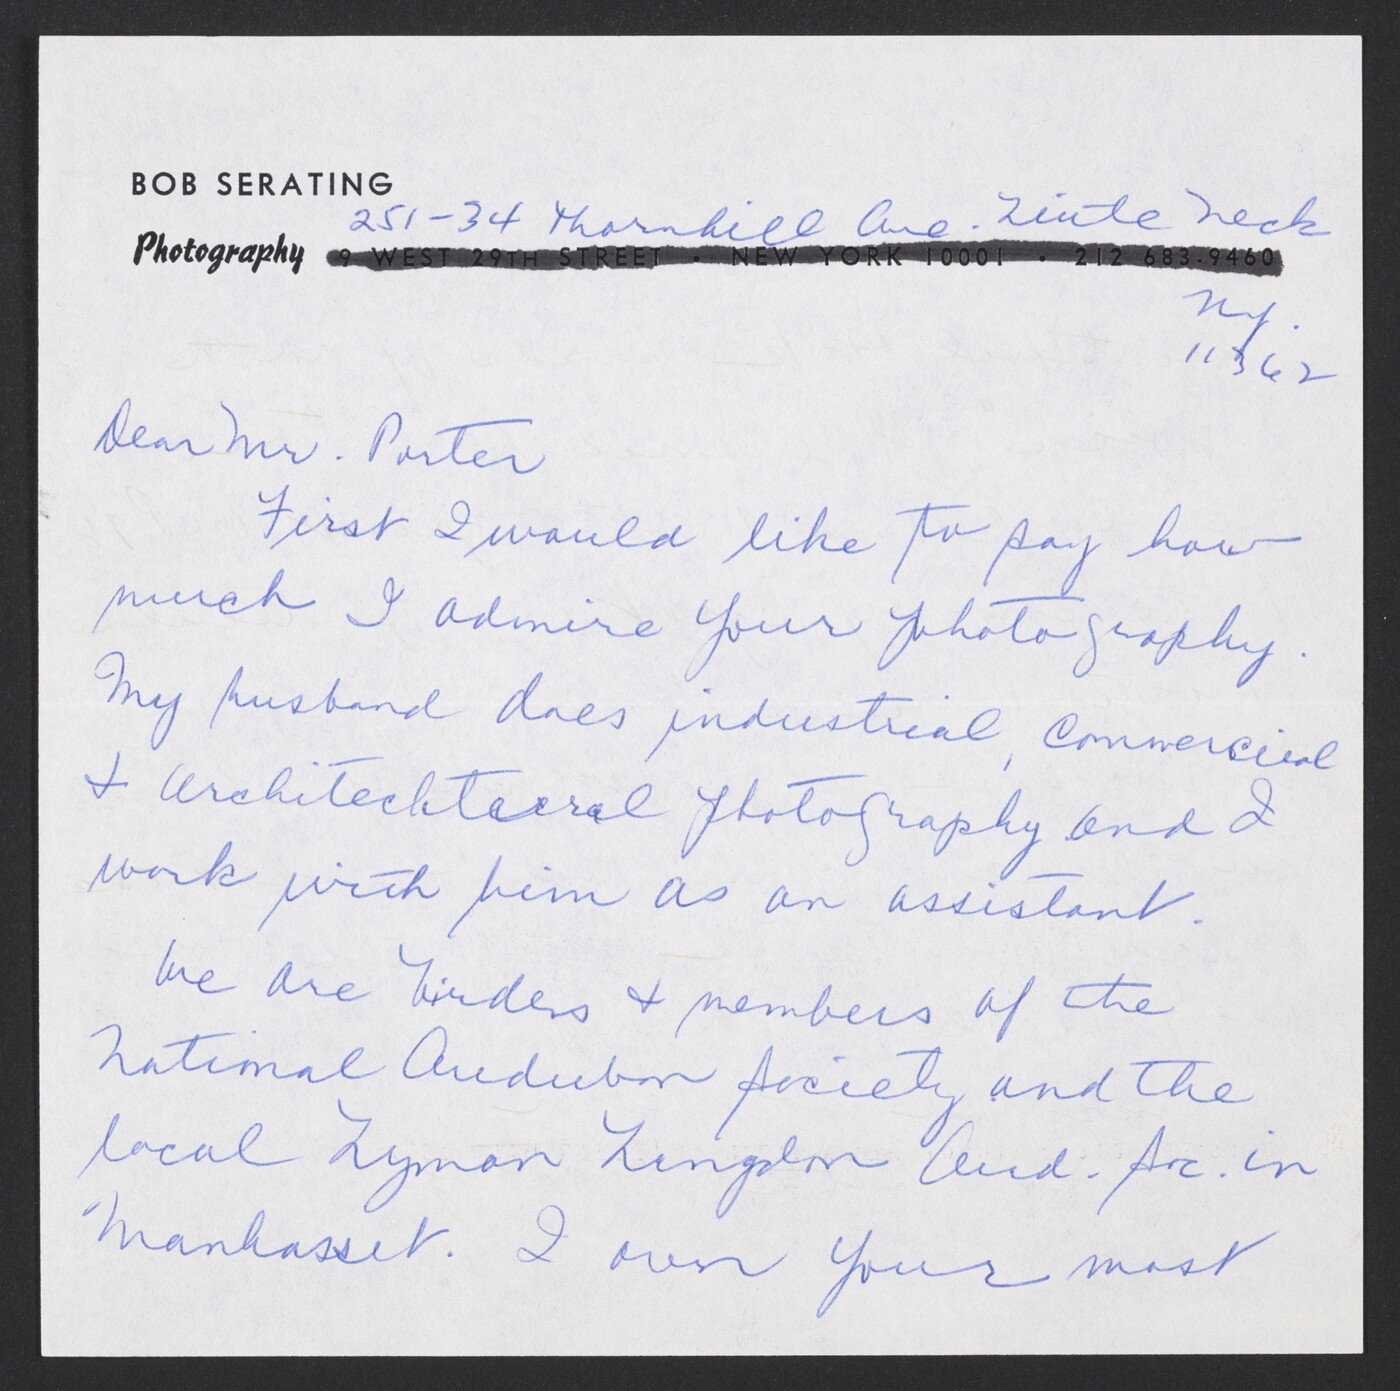 BOB SERATING
251-34 Thornhill Ave. Little Neck
Photography 9 WEST 29TH STREET • NEW YORK 10001 • 212 683-9460
Ny.
11362
Dear Mr. Porter
First I would like to say how
much I admire your photography.
My husband does industrial, commercial
& architechtural photography and I
work with him as an assistant.
We are birders & members of the
National Audubon Society and the
local Lyman Langdon Aud. Soc. in
Manhasset. I own your most